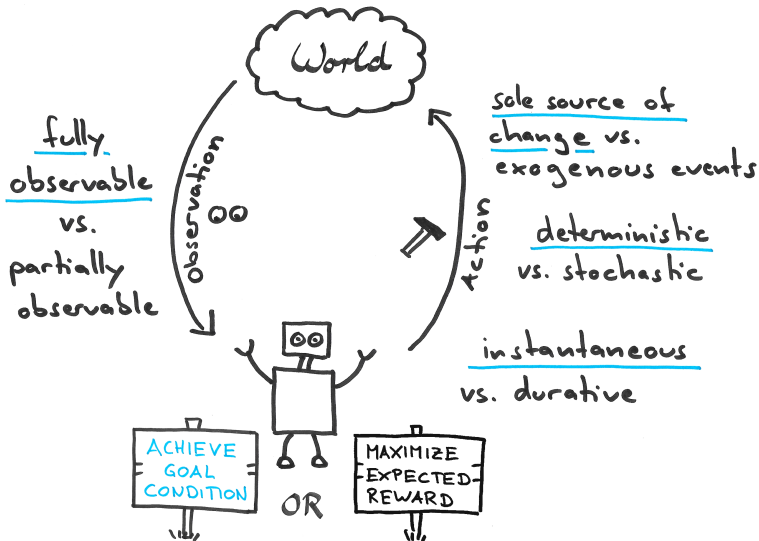 World
fully
observable
vs.
partially
observable
Observation
Action
sole source of
change vs.
exogenous events
deterministic
vs. stochastic
instantaneous
vs. durative
ACHIEVE
GOAL
CONDITION
OR
MAXIMIZE
EXPECTED
REWARD